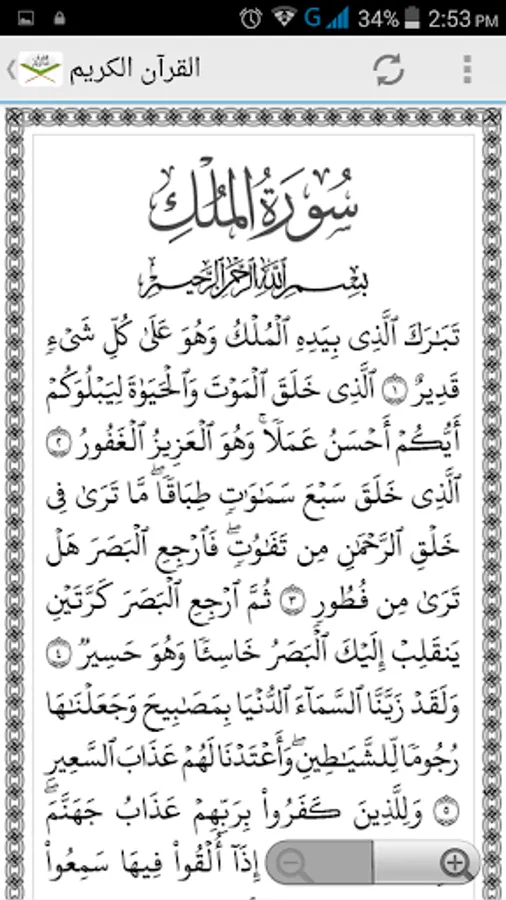 G 34% 2:53 PM
القرآن الكريم
سُورَةُ المُلْكِ
بِسْمِ اللَّهِ الرَّحْمَٰنِ الرَّحِيمِ
تَبَٰرَكَ ٱلَّذِى بِيَدِهِ ٱلْمُلْكُ وَهُوَ عَلَىٰ كُلِّ شَىْءٍ
قَدِيرٌ ١ ٱلَّذِى خَلَقَ ٱلْمَوْتَ وَٱلْحَيَوٰةَ لِيَبْلُوَكُمْ
أَيُّكُمْ أَحْسَنُ عَمَلًا ۚ وَهُوَ ٱلْعَزِيزُ ٱلْغَفُورُ ٢
ٱلَّذِى خَلَقَ سَبْعَ سَمَٰوَٰتٍ طِبَاقًا ۖ مَّا تَرَىٰ فِى
خَلْقِ ٱلرَّحْمَٰنِ مِن تَفَٰوُتٍ ۖ فَٱرْجِعِ ٱلْبَصَرَ هَلْ
تَرَىٰ مِن فُطُورٍ ٣ ثُمَّ ٱرْجِعِ ٱلْبَصَرَ كَرَّتَيْنِ
يَنقَلِبْ إِلَيْكَ ٱلْبَصَرُ خَاسِئًا وَهُوَ حَسِيرٌ ٤
وَلَقَدْ زَيَّنَّا ٱلسَّمَآءَ ٱلدُّنْيَا بِمَصَٰبِيحَ وَجَعَلْنَٰهَا
رُجُومًا لِّلشَّيَٰطِينِ ۖ وَأَعْتَدْنَا لَهُمْ عَذَابَ ٱلسَّعِيرِ
٥ وَلِلَّذِينَ كَفَرُوا۟ بِرَبِّهِمْ عَذَابُ جَهَنَّمَ ۖ
إِذَآ أُلْقُوا۟ فِيهَا سَمِعُوا۟